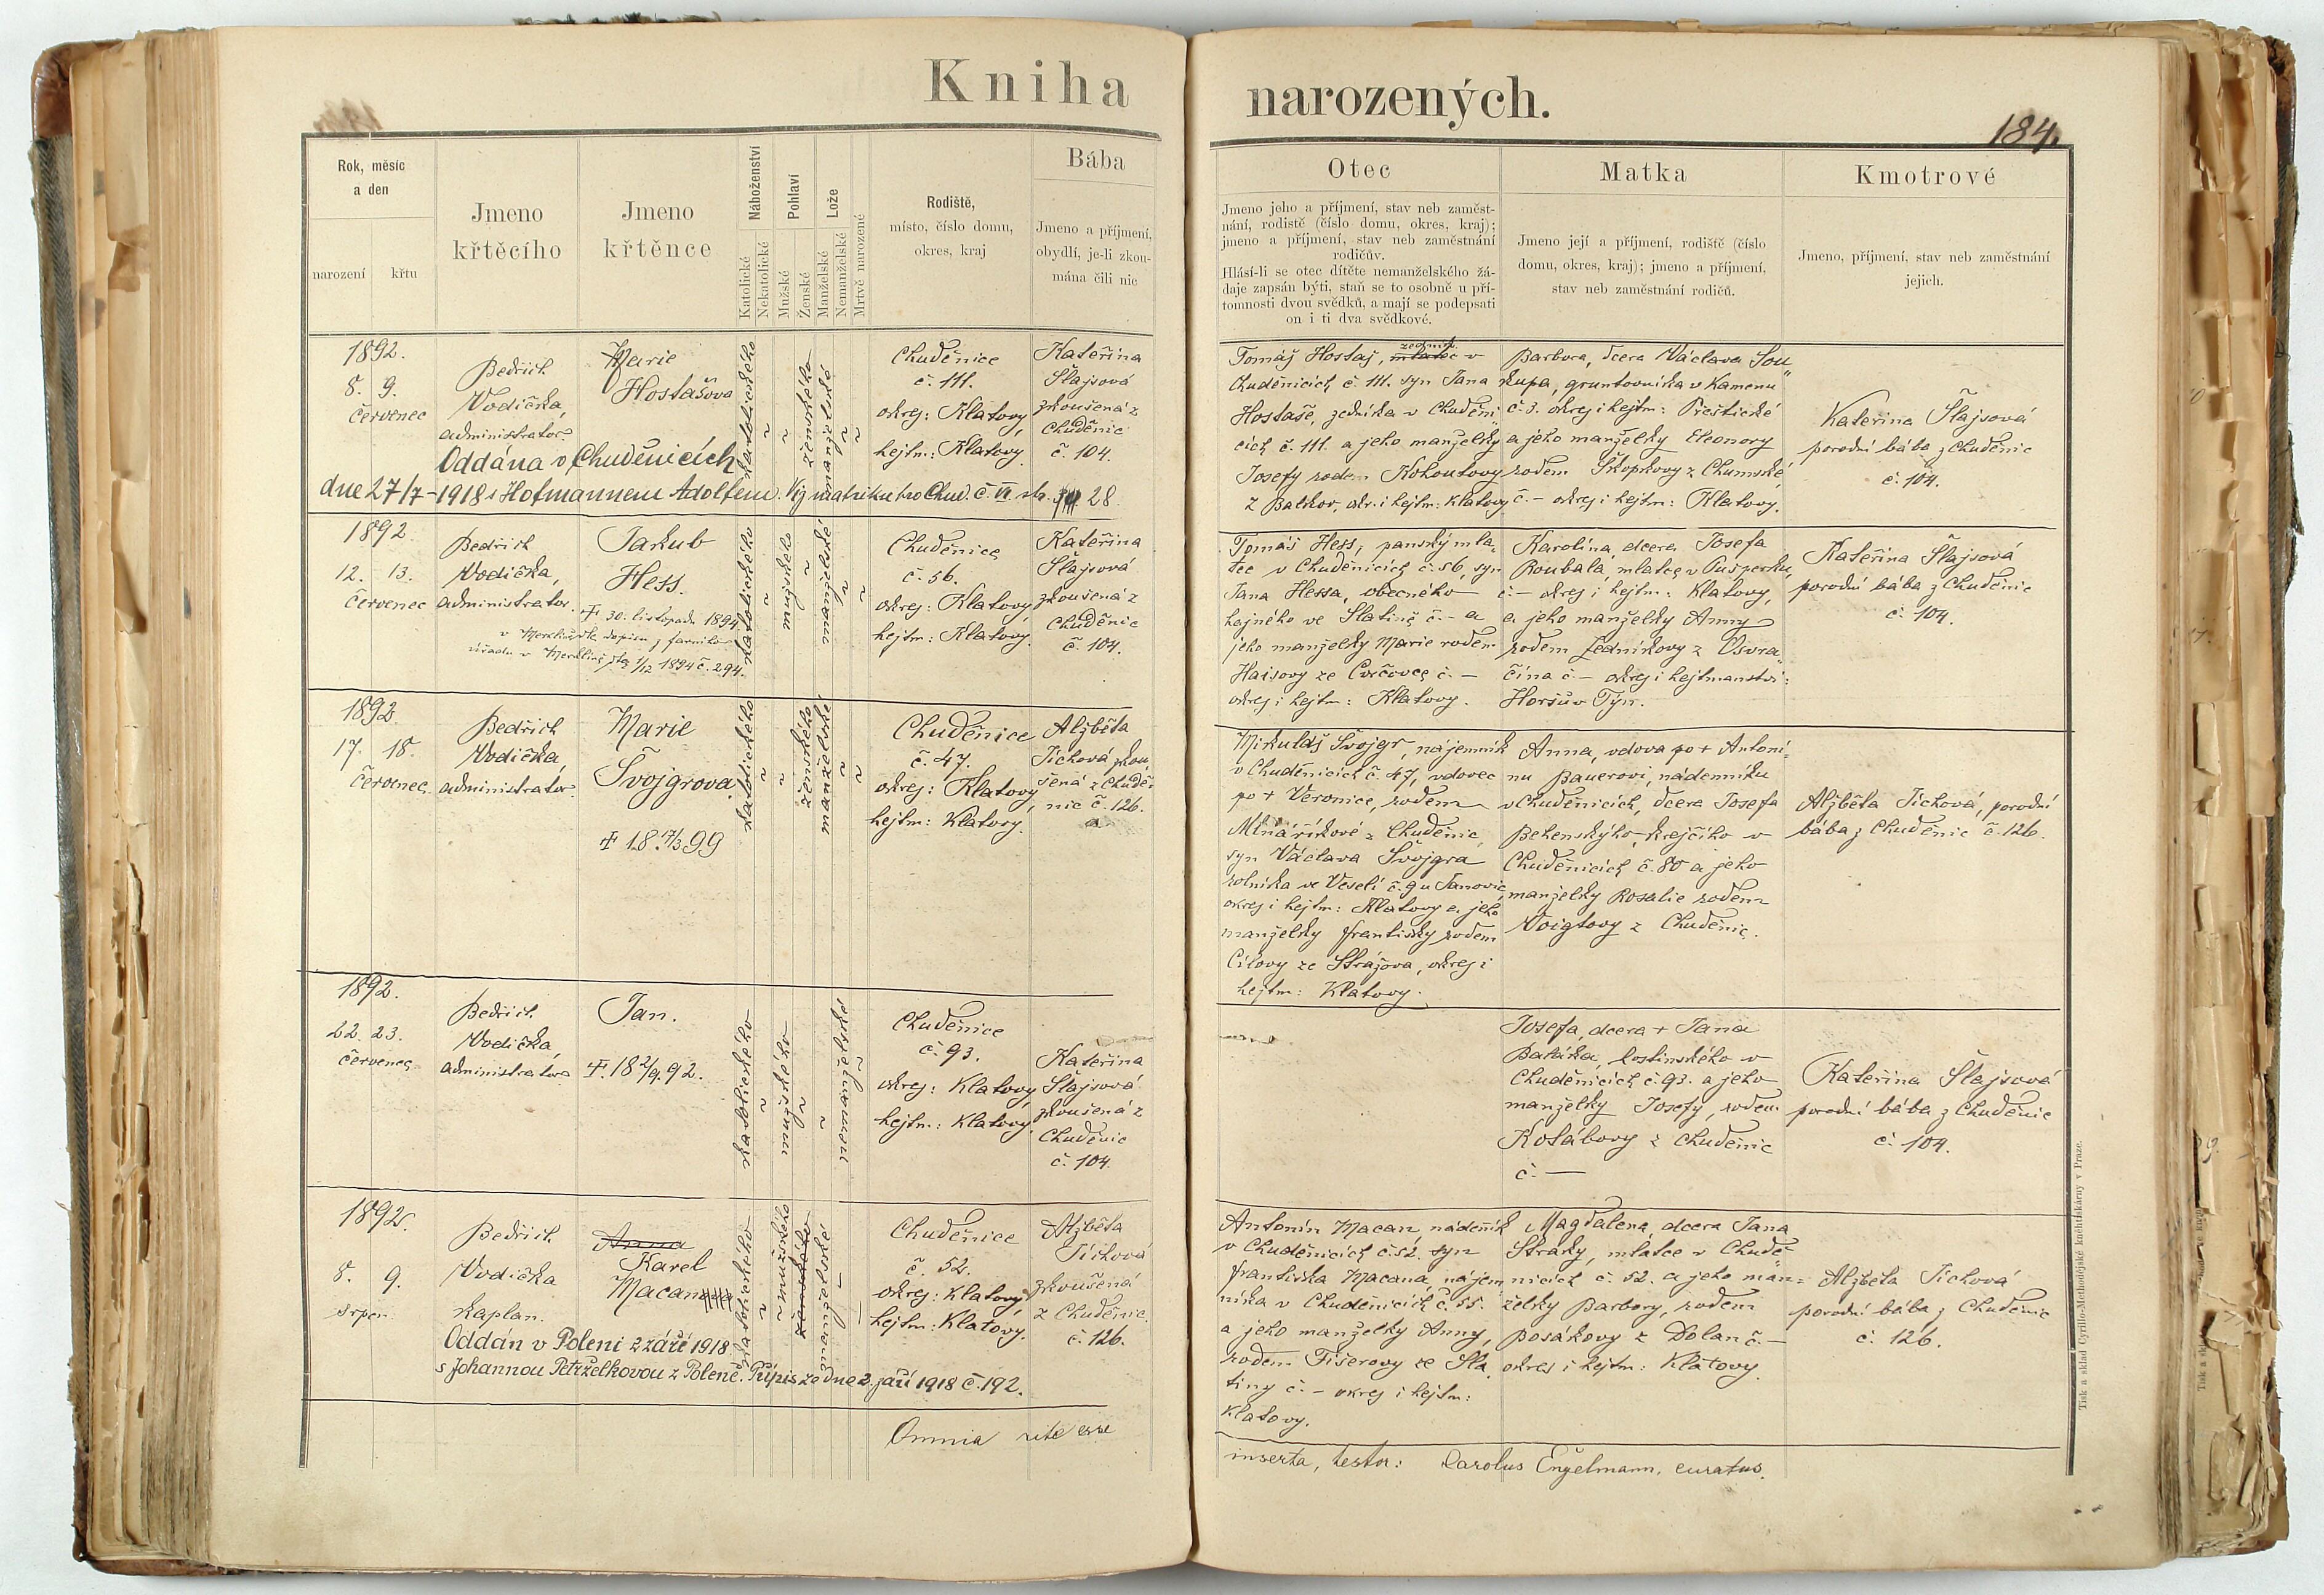 Kniha narozených.
184.
Rok, měsíc
a den
narození
křtu
Jmeno
křtěcího
Jmeno
křtěnce
Náboženství
Katolické
Nekatolické
Pohlaví
Mužské
Ženské
Lože
Manželské
Nemanželské
Mrtvě narozené
Rodiště,
místo, číslo domu,
okres, kraj
Bába
Jmeno a příjmení,
obydlí, je-li zkou-
mána čili nic
Otec
Jmeno jeho a příjmení, stav neb zaměst-
nání, rodistě (číslo domu, okres, kraj);
jmeno a příjmení, stav neb zaměstnání
rodičův.
Hlásí-li se otec dítěte nemanželského žá-
daje zapsán býti, staň se to osobně u pří-
tomnosti dvou svědků, a mají se podepsati
on i ti dva svědkové.
Matka
Jmeno její a příjmení, rodiště (číslo
domu, okres, kraj); jmeno a příjmení,
stav neb zaměstnání rodičů.
Kmotrové
Jmeno, příjmení, stav neb zaměstnání
jejich.
1892.
8. 9.
červenec
Bedřich
Vodička,
administrator
Marie
Hostašova
katolického
ženského
manželské
Chuděnice
č. 111.
okres: Klatovy,
hejtm: Klatovy.
Kateřina
Šlajsová
zkoušená z
Chuděnic
č. 104.
Oddána v Chudenicích
dne 27/7 – 1918 s Hofmannem Adolfem. Viz matriku pro Chud. č. VI str. 28
Tomáš Hostaš, zedník mlatec v
Chuděnicích č. 111. syn Jana
Hostaše, zedníka v Chuděni„
cích č. 111. a jeho manželky
Josefy rodem Kohoutovy
z Balkov, okr. i hejtm: Klatovy
Barbora, dcera Václava Sou„
kupa, gruntovníka v Kamenu
č. 3. okres i hejtm: Přeštické
a jeho manželky Eleonory
rodem Škopkovy z Chumské,
č. – okres i hejtm: Klatovy.
Kateřina Šlajsová
porodní bába z Chuděnic
č. 104.
1892
12. 13.
Červenec
Bedřich
Vodička,
administrator
Jakub
Hess.
† 30. listopadu 1894
v Merklíně dle dopisu farního
úřadu v Merklíně dto 1/12 1894 č. 294.
katolického
mužského
manželské
Chuděnice
č. 56.
okres: Klatovy,
hejtm: Klatovy.
Kateřina
Šlajsová
zkoušená z
Chuděnic
č. 104.
Tomáš Hess, panský mla„
tec v Chuděnicích č. 56, syn
Jana Hessa, obecného
hajného ve Slatině č. – a
jeho manželky Marie rodem
Haisovy ze Cvrčovce č. –
okres i hejtm: Klatovy.
Karolina, dcera Josefa
Roubala, mlatce v Pušperku,
č. – okres i hejtm: Klatovy,
a jeho manželky Anny
rodem Ledníkovy z Osvra„
čína č. – okres i hejtmanství:
Horšův Týn.
Kateřina Šlajsová
porodní bába z Chuděnic
č. 104.
1892
17. 18.
Červenec
Bedřich
Vodička,
administrator
Marie
Švojgrova.
† 18 17/3 99
katolického
ženského
manželské
Chuděnice
č. 47.
okres: Klatovy,
hejtm: Klatovy.
Alžběta
Tichová zkou„
šená z Chudě„
nic č. 126.
Mikuláš Švojgr, nájemník
v Chuděnicích č. 47, vdovec
po † Veronice, rodem
Mlnaříkové z Chuděnic,
syn Václava Švojgra
rolníka ve Veselí č. 9 u Janovic,
okres i hejtm: Klatovy a jeho
manželky Františky rodem
Cílovy ze Strážova, okres i
hejtm: Klatovy.
Anna, vdova po † Antoní„
nu Bauerovi, nádenníku
v Chuděnicích, dcera Josefa
Behenského, krejčího v
Chuděnicích č. 80 a jeho
manželky Rosalie rodem
Voigtovy z Chuděnic.
Alžběta Tichová, porodní
bába z Chuděnic č. 126.
1892.
22. 23.
červenec
Bedřich
Vodička,
administrator
Jan.
†. 18 2/9. 92.
katolického
mužského
nemanželské
Chuděnice
č. 93.
okres: Klatovy,
hejtm: Klatovy.
Kateřina
Šlajsová
zkoušená z
Chuděnic
č. 104.
Josefa, dcera † Jana
Batáka, hostinského v
Chuděnicích č. 93. a jeho
manželky Josefy, rodem
Kolábovy z Chuděnic
č. —
Kateřina Šlajsová
porodní bába z Chuděnic
č. 104.
1892.
8. 9.
srpen
Bedřich
Vodička
kaplan.
Anna
Karel
Macan
katolického
mužského
ženského
manželské
Chuděnice
č. 52.
okres: Klatovy,
hejtm: Klatovy.
Alžběta
Tichová
zkoušená
z Chuděnic.
č. 126.
Oddán v Poleni 2 září 1918
s Johannou Petrželkovou z Poleně. Přípis ze dne 2. září 1918 č. 192.
Antonín Macan, nádeník
v Chuděnicích č. 52. syn
Františka Macana, nájem
níka v Chuděnicích č. 55.
a jeho manželky Anny,
rodem Fišerovy ze Sla„
tiny č. – okres i hejtm:
Klatovy.
Magdalena, dcera Jana
Straky, mlatce v Chudě„
nicích č. 52. a jeho man„
želky Barbory, rodem
Posákovy z Dolan č. –
okres i hejtm: Klatovy.
Alžběta Tichová
porodní bába z Chuděnic
č. 126.
Omnia rite esse
inserta, testor: Carolus Engelmann, curatus.
Tisk a sklad Cyrillo-Methodějské kněhtiskárny v Praze.